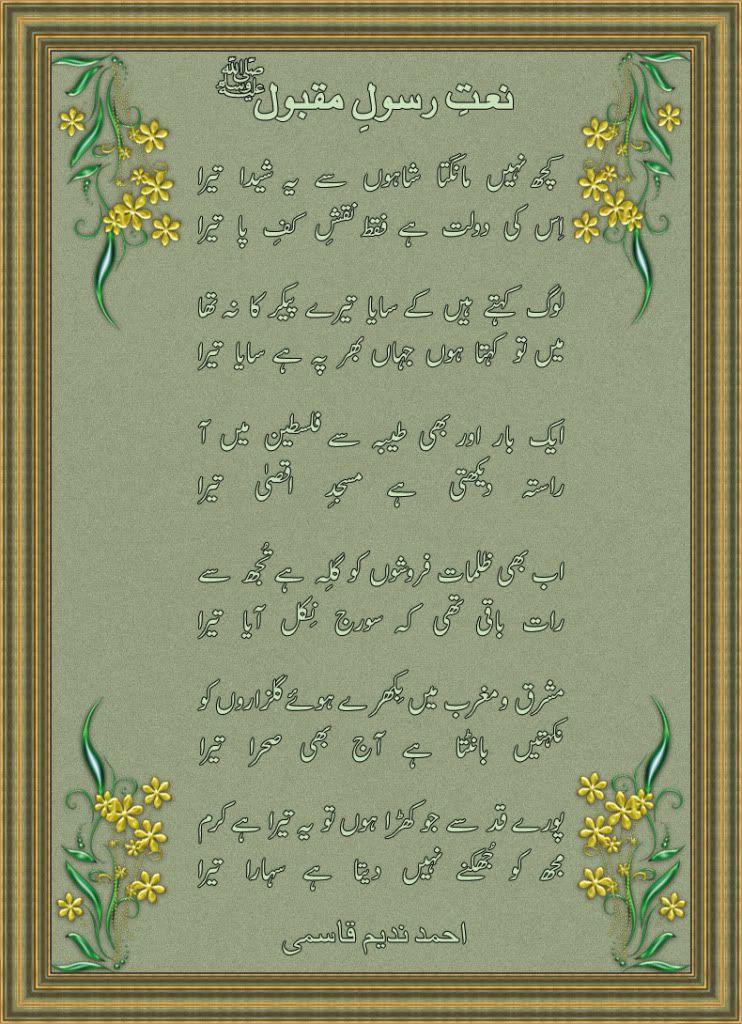 نعتِ رسولِ مقبول ﷺ
کچھ نہیں مانگتا شاہوں سے یہ شیدا تیرا
اِس کی دولت ہے فقط نقشِ کفِ پا تیرا
لوگ کہتے ہیں کے سایا تیرے پیکر کا نہ تھا
میں تو کہتا ہوں جہاں بھر پہ ہے سایا تیرا
ایک بار اور بھی طیبہ سے فلسطین میں آ
راستہ دیکھتی ہے مسجدِ اقصیٰ تیرا
اب بھی ظلمات فروشوں کو گلِہ ہے تُجھ سے
رات باقی تھی کہ سورج نِکل آیا تیرا
مشرق و مغرب میں بِکھرے ہوئے گلزاروں کو
نکہتیں بانٹتا ہے آج بھی صحرا تیرا
پورے قد سے جو کھڑا ہوں تو یہ تیرا ہے کرم
مجھ کو جُھکنے نہیں دیتا ہے سہارا تیرا
احمد ندیم قاسمی